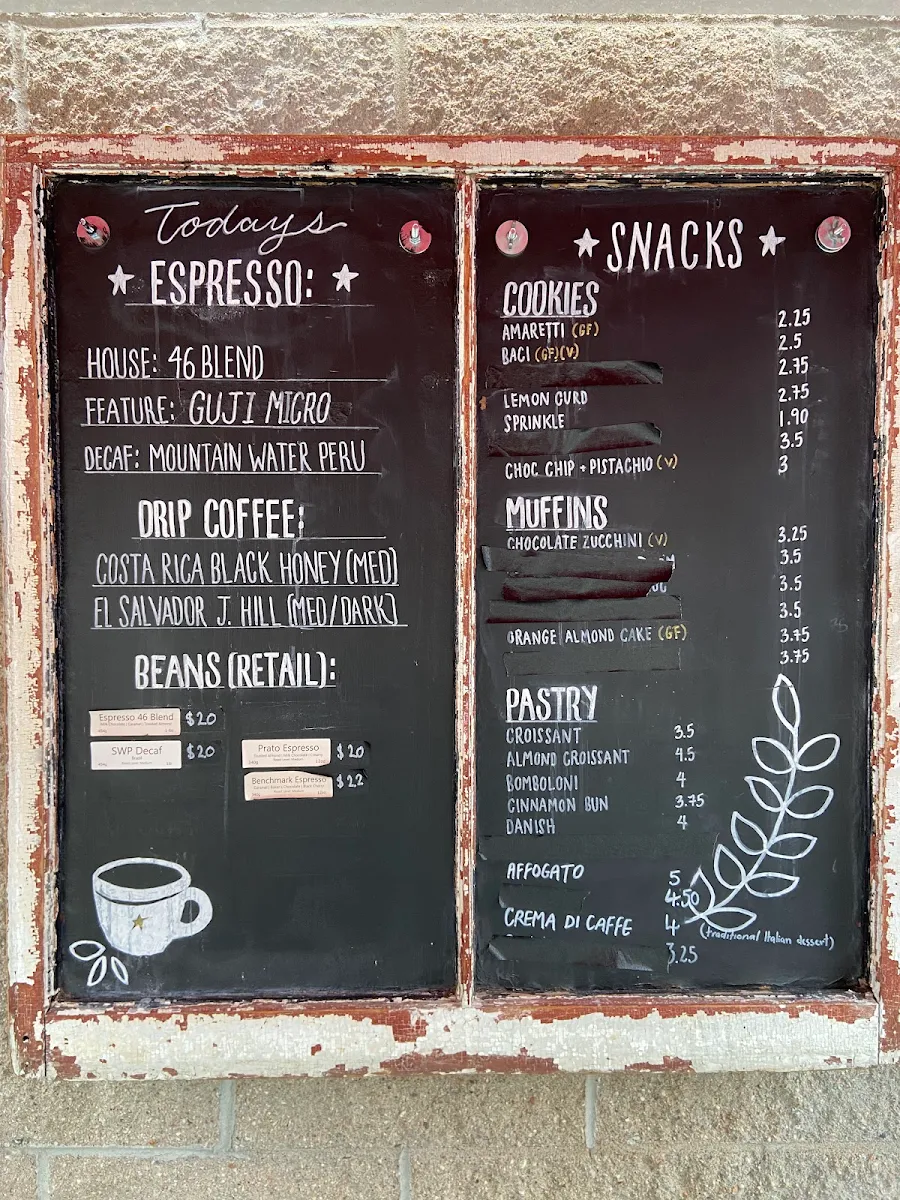 Todays
ESPRESSO:
HOUSE: 46 BLEND
FEATURE: GUJI MICRO
DECAF: MOUNTAIN WATER PERU
DRIP COFFEE:
COSTA RICA BLACK HONEY (MED)
EL SALVADOR J. HILL (MED/DARK)
BEANS (RETAIL):
Espresso 46 Blend $20
SWP Decaf $20
Prato Espresso $20
Benchmark Espresso $22
SNACKS
COOKIES
AMARETTI (GF) 2.25
BACI (GF)(V) 2.5
2.75
LEMON CURD 2.75
SPRINKLE 1.90
3.5
CHOC CHIP + PISTACHIO (V) 3
MUFFINS
CHOCOLATE ZUCCHINI (V) 3.25
3.5
3.5
3.5
ORANGE ALMOND CAKE (GF) 3.75
3.75
PASTRY
CROISSANT 3.5
ALMOND CROISSANT 4.5
BOMBOLONI 4
CINNAMON BUN 3.75
DANISH 4
AFFOGATO 5
4.50
CREMA DI CAFFE 4 (traditional Italian dessert)
3.25